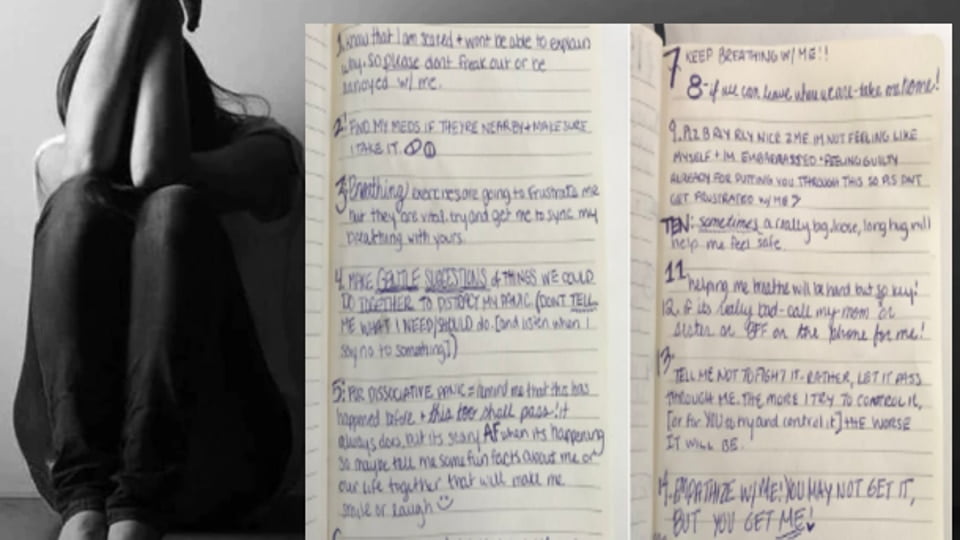 1. Know that I am scared + wont be able to explain
why, so please dont freak out or be
annoyed w/ me.
2: FIND MY MEDS IF THEYRE NEARBY + MAKE SURE
I TAKE IT.
3: Breathing exercises are going to frustrate me
but they are vital. try and get me to sync my
breathing with yours.
4. MAKE GENTLE SUGGESTIONS of THINGS WE COULD
DO TOGETHER TO MY PANIC. (DON'T TELL
ME WHAT I NEED/SHOULD do. [and listen when I
say no to something])
5: FOR DISSOCIATIVE PANIC = remind me that this has
happened before + this too shall pass! it
always does, but its scary AF when its happening
so maybe tell me some fun facts about me or
our life together that will make me
smile or laugh
7 KEEP BREATHING W/ ME!!
8- if we can leave where we are - take me home!
9. PLZ B RLY RLY NICE 2 ME IM NOT FEELING LIKE
MYSELF + IM EMBARRASSED + FEELING GUILTY
ALREADY FOR PUTTING YOU THROUGH THIS SO PLS DNT
GET FRUSTRATED W/ ME
TEN: sometimes a really big, loose, long hug will
help me feel safe.
11 helping me breathe will be hard but so key!
12. if its really bad - call my mom or
sister or BFF on the phone for me!
13. TELL ME NOT TO FIGHT IT - RATHER, LET IT PASS
THROUGH ME. THE MORE I TRY TO CONTROL IT,
[or for YOU to try and control it] THE WORSE
IT WILL BE.
14. EMPATHIZE W/ ME! YOU MAY NOT GET IT,
BUT YOU GET ME!